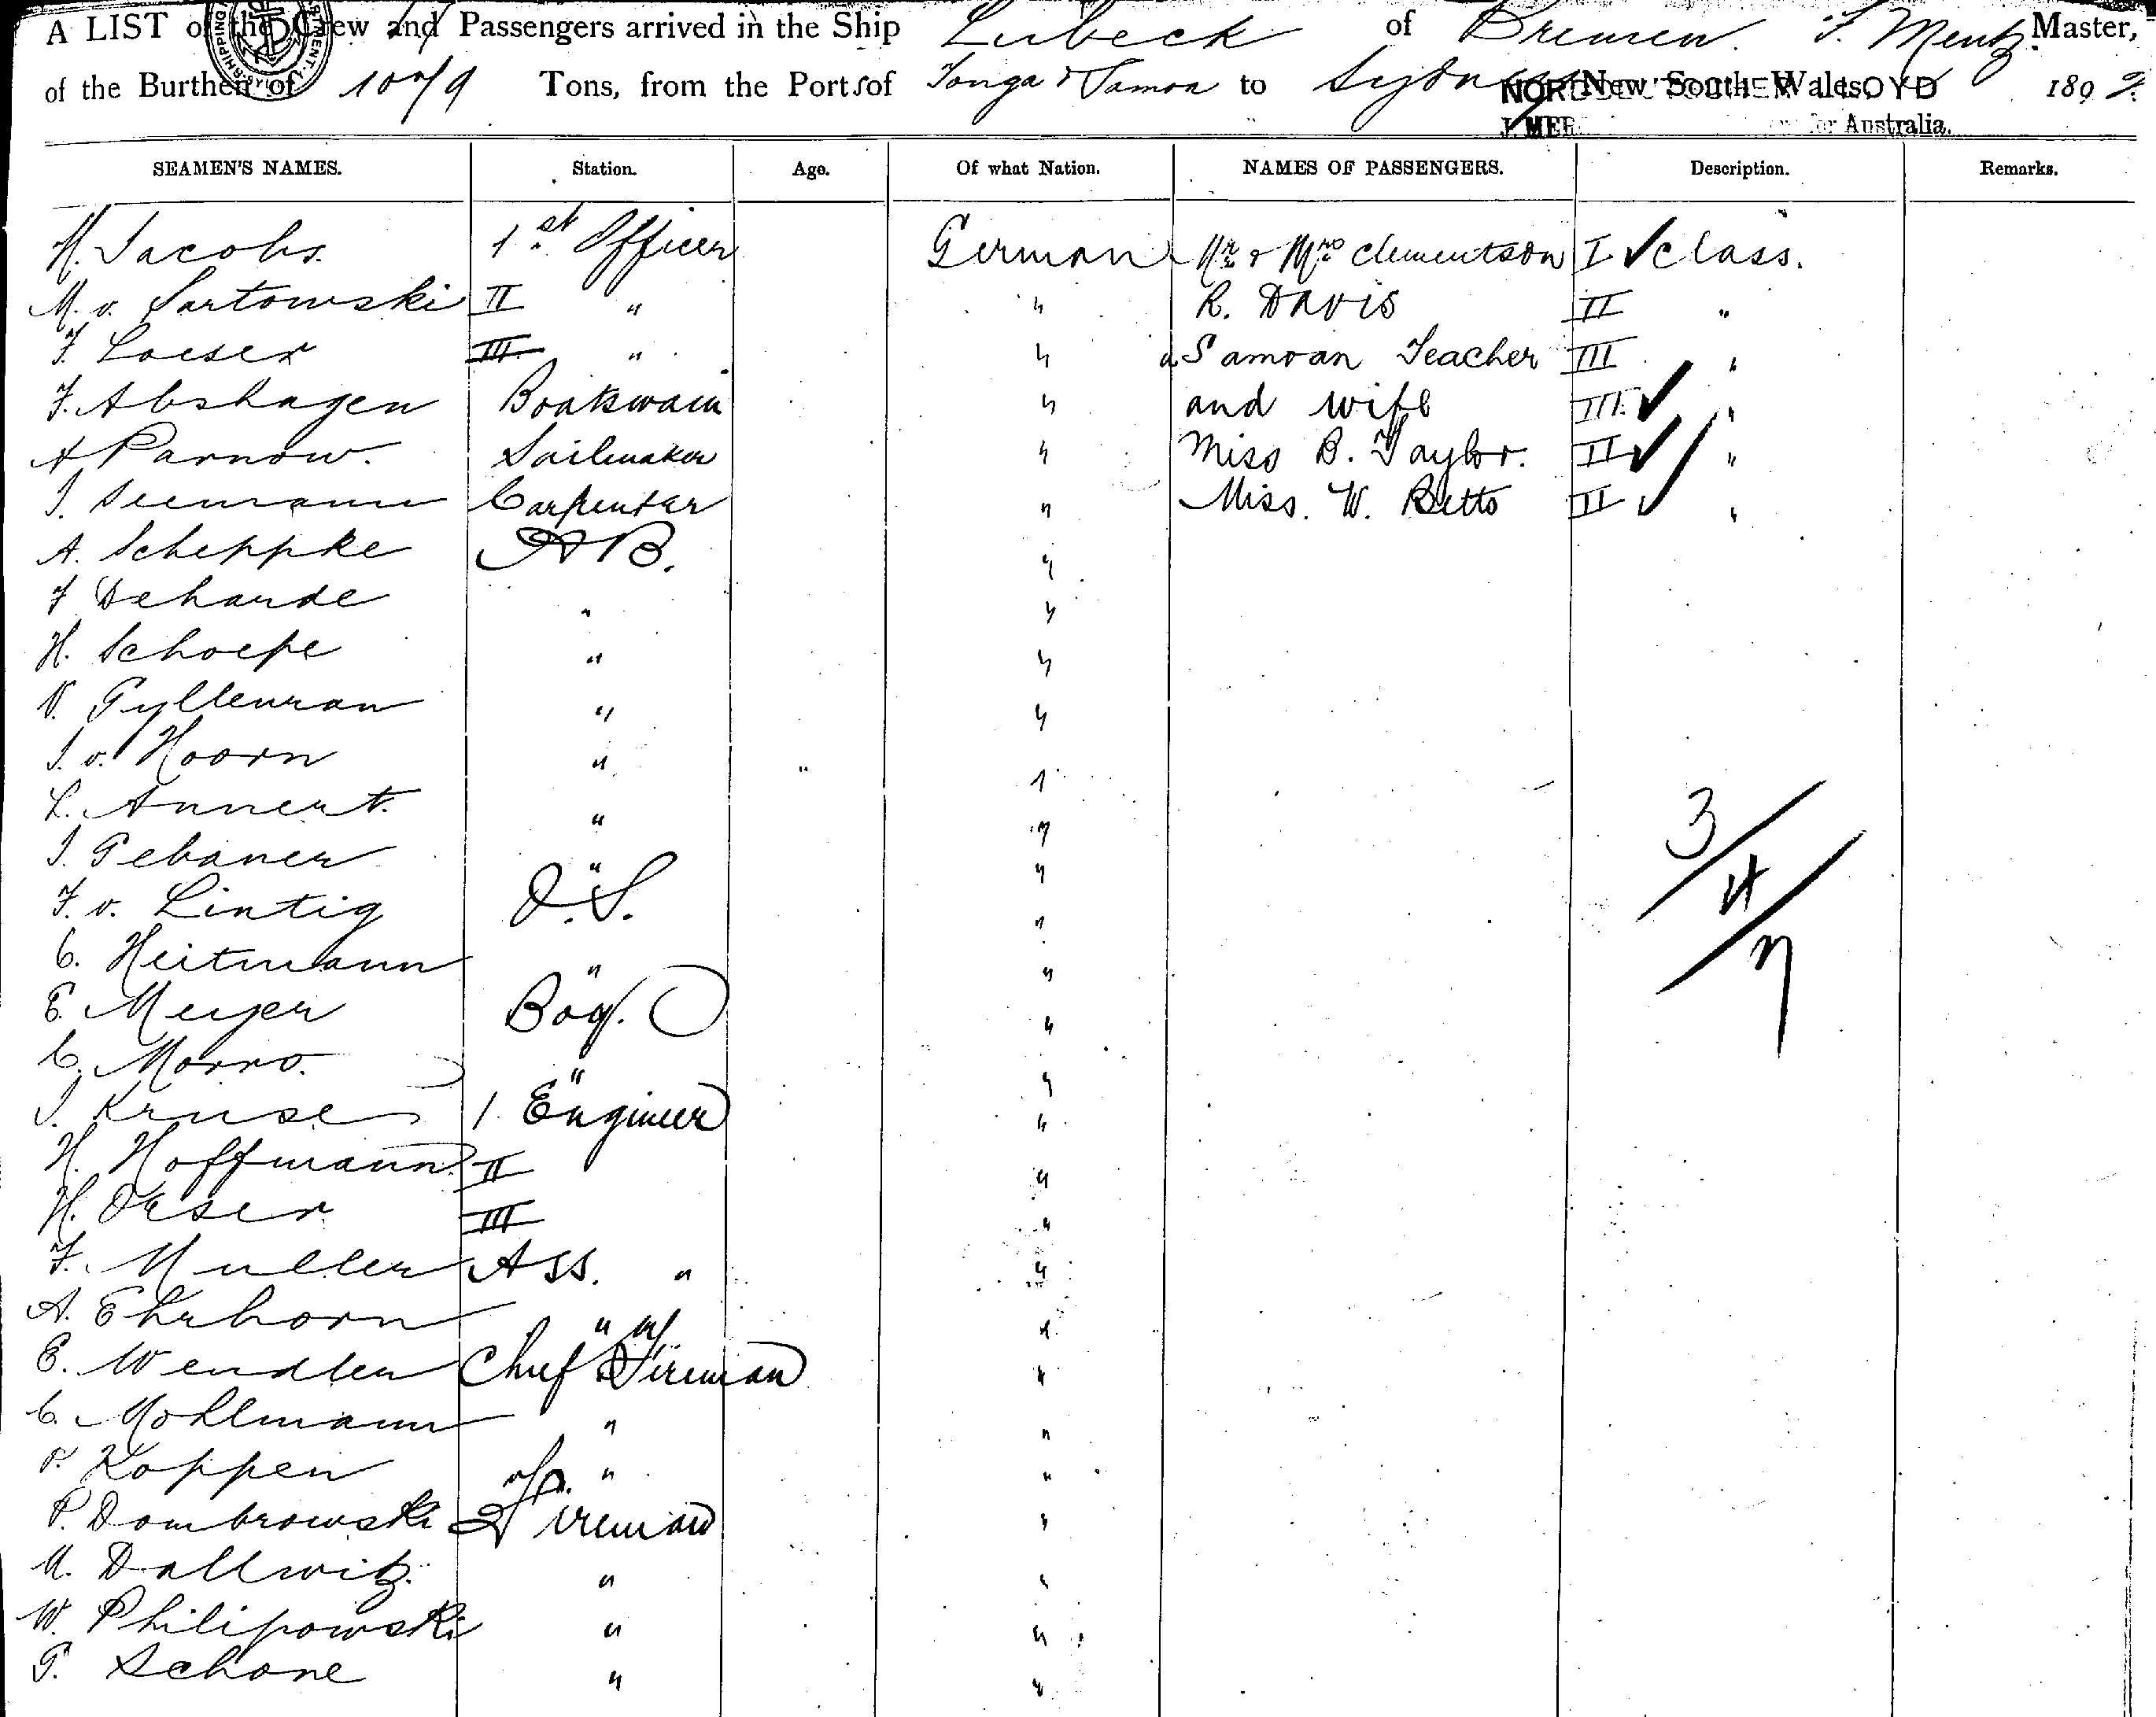 A LIST of the Crew and Passengers arrived in the Ship Lubeck of Bremen. F. Mentz. Master,
of the Burthen of Tons, from the Ports of Tonga & Samoa to Sydney New South Wales, 1892
NORDDEUTSCHER LLOYD
for Australia.
SEAMEN'S NAMES. Station. Age. Of what Nation. NAMES OF PASSENGERS. Description. Remarks.
H. Jacobs. 1st Officer German Mr & Mrs Clementson I ✓ Class.
M. v. Sartowski II " " R. Davis II "
F. Loeser III " " a Samoan Teacher III "
F. Abshagen Boatswain " and wife III ✓ "
A Parnow. Sailmaker " Miss B. Taylor. II ✓ "
J. Seemann Carpenter " Miss. W. Betts II ✓ "
A. Scheppke AB. "
F Deharde " "
H. Schoepe " "
V. Gyllenran " "
J. v. Hoorn " "
L. Annert. " "
J. Gebauer " "
F. v. Lintig O.S. "
C. Heitmann " "
E. Meyer Boy. "
C. Morro. " "
J. Kruse 1. Engineer "
H. Hoffmann II "
H. Oeser III "
F. Muller Ass. " "
A. Ehrhorn " "
E. Wendler Chief Fireman "
C. Mohlmann " "
F. Koppen " "
P. Dombrowski Fireman "
M. Dallwitz. " "
W. Philipowski " "
G. Schone " "
3
4
7